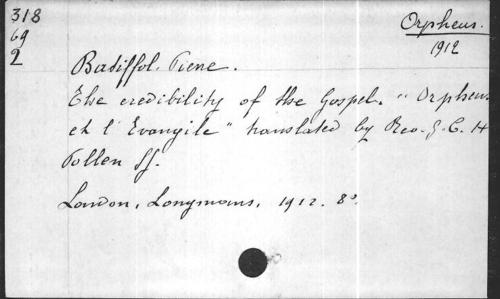 318
69
2
Orpheus.
1912
Batiffol. Pierre.
The credibility of the Gospel. "Orpheus
et l'Evangile" translated by Rev. G. C. H
Pollen SJ.
London, Longmans, 1912. 8o.